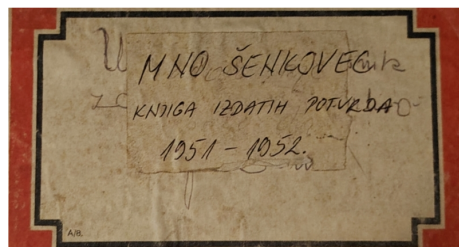 MNO ŠENKOVEC
KNJIGA IZDATIH POTVRDA
1951-1952.
A/B.